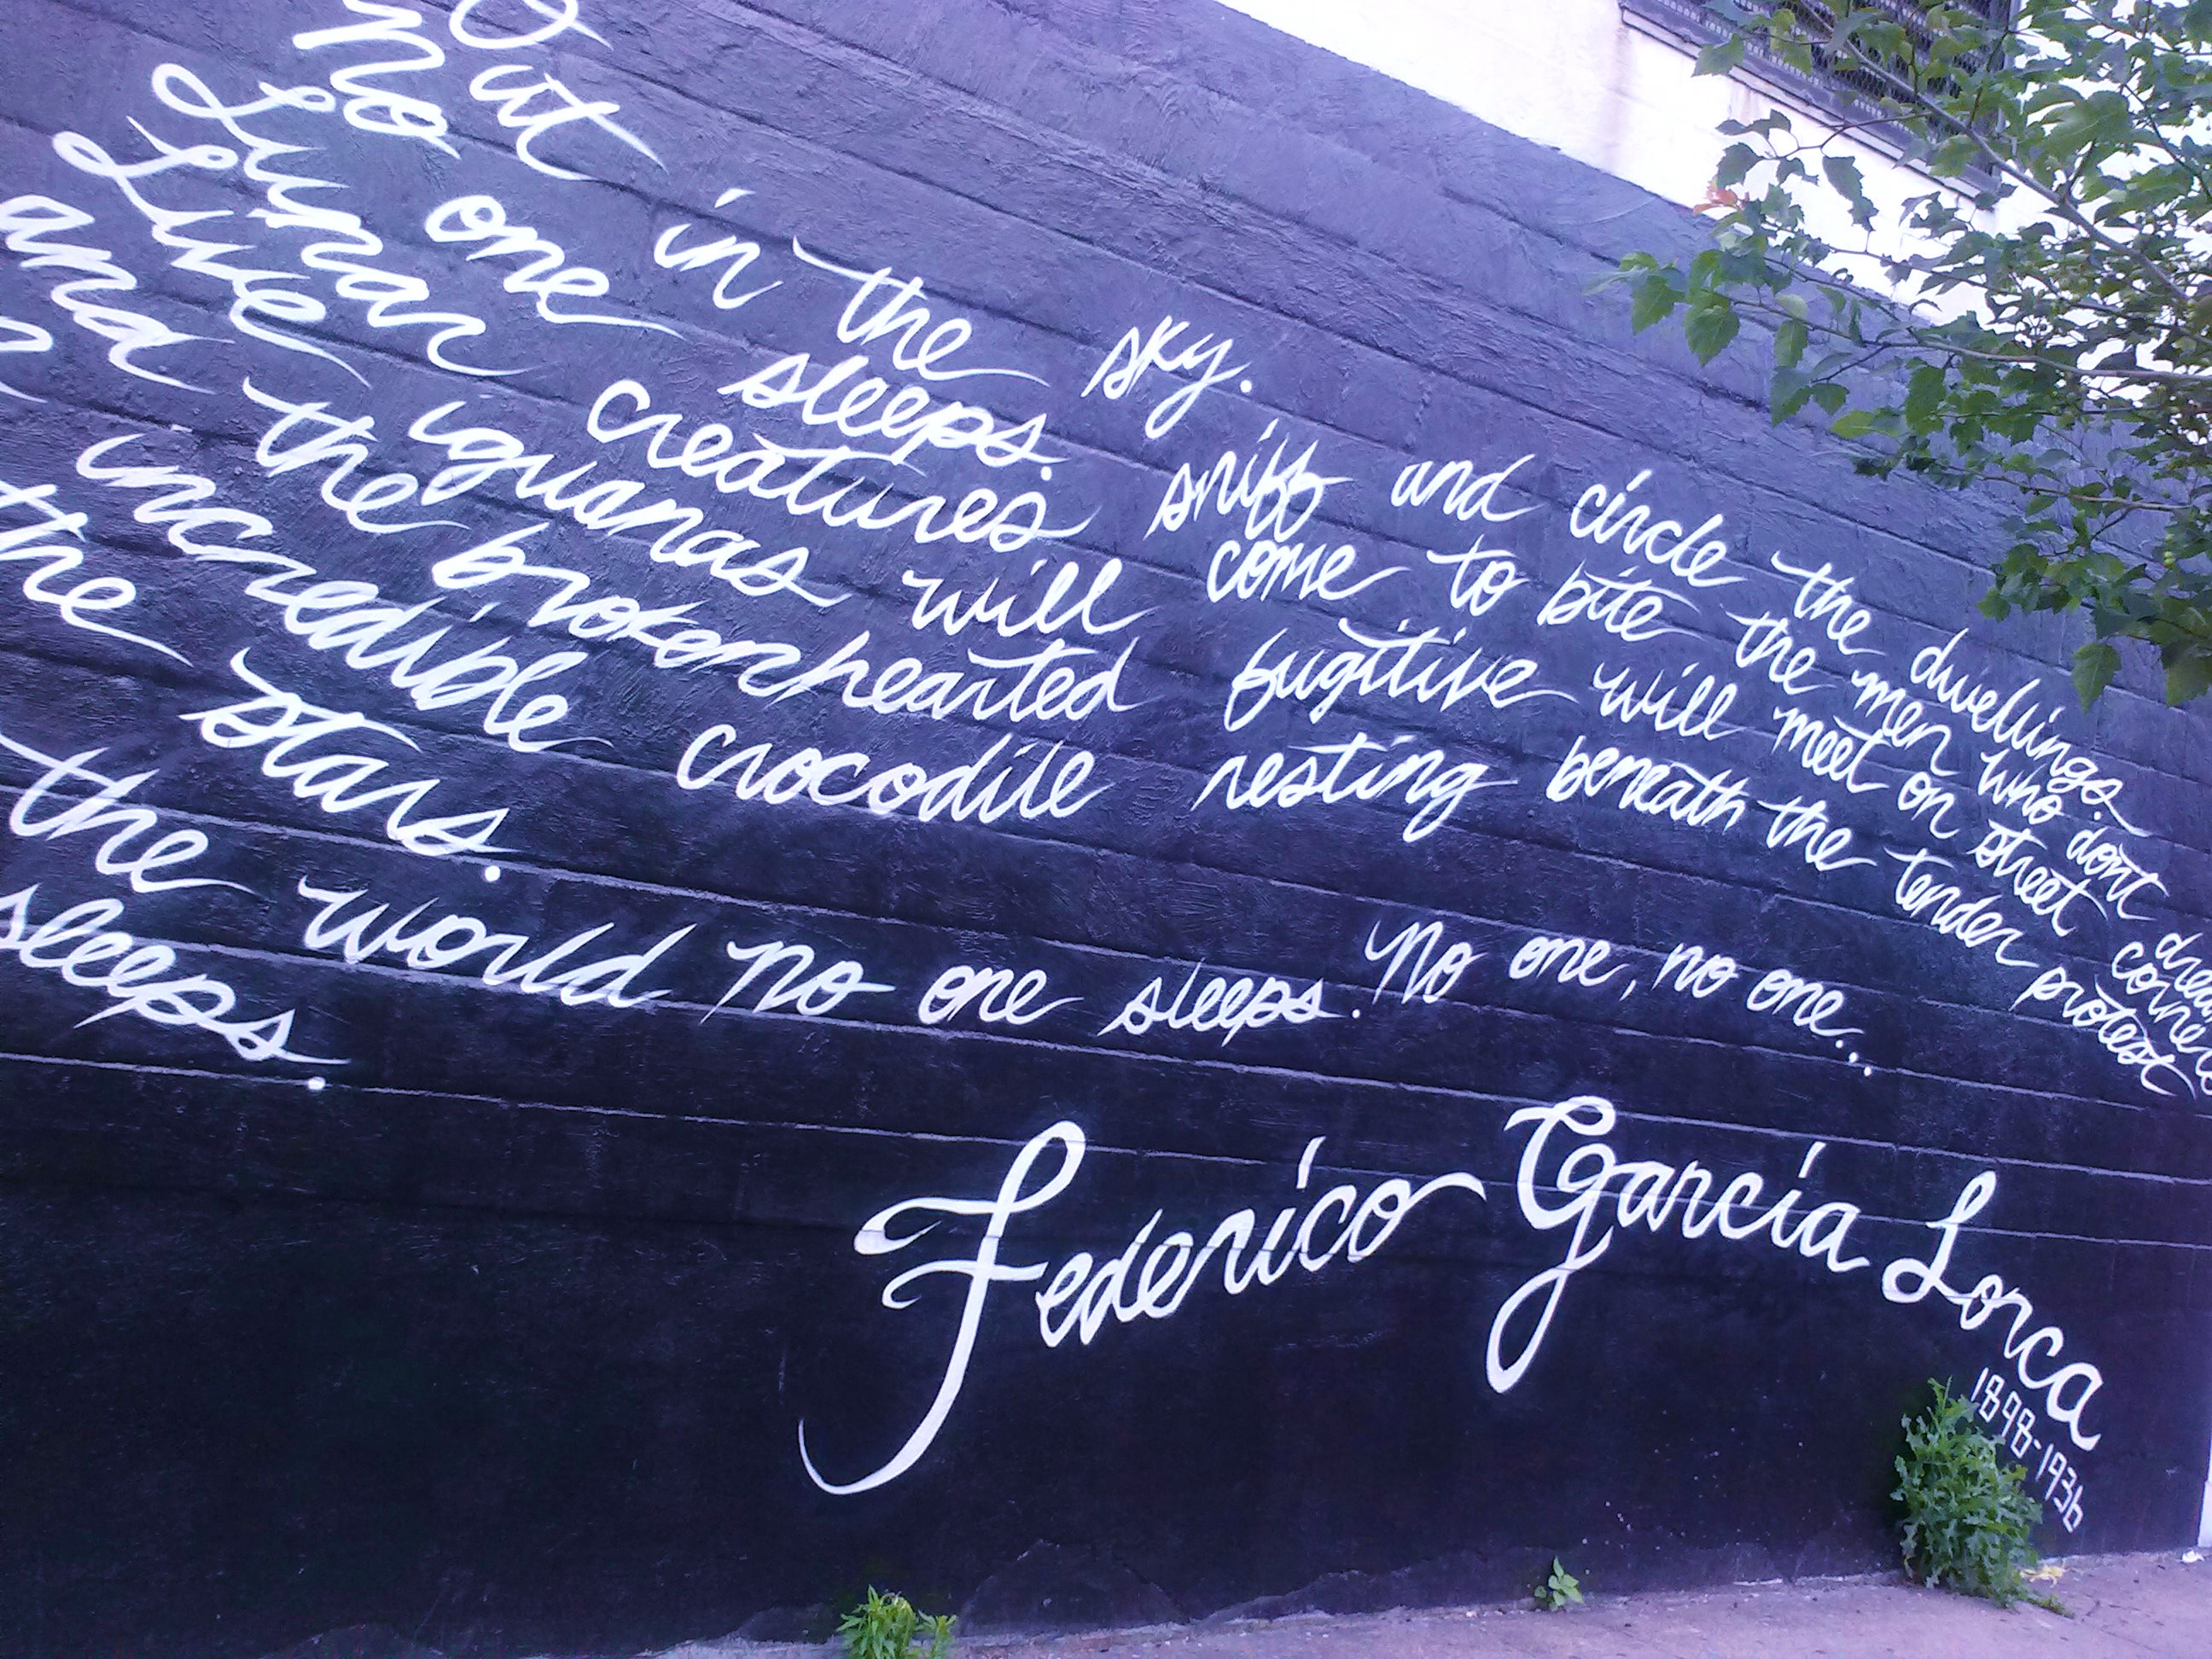 Out in the sky.
no one sleeps.
Lunar creatures sniff and circle the dwellings.
Live iguanas will come to bite the men who don't
and the brokenhearted fugitive will meet on street corners
incredible crocodile resting beneath the tender protest
the stars.
the world no one sleeps. No one, no one..
sleeps.
Federico García Lorca
1898-1936